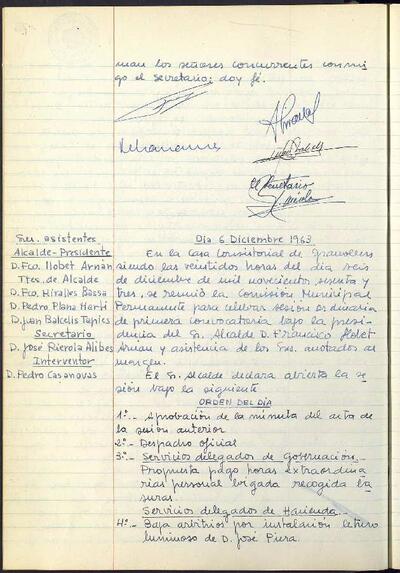 man los señores concurrentes conmi
go el secretario; doy fé.
El Secretario
Sres. asistentes
Alcalde-Presidente
D. Fco. Llobet Arnán
Ttes. de Alcalde
D. Fco. Miralles Bassa
D. Pedro Plana Martí
D. Juan Balcells Tapies
Secretario
D. José Rierola Alibes
Interventor
D. Pedro Casanovas
Dia 6 Diciembre 1963
En la Casa Consistorial de Granollers
siendo las veintidos horas del dia seis
de diciembre de mil novecientos sesenta y
tres, se reunió la Comisión Municipal
Permanente para celebrar sesión ordinaria
de primera convocatoria bajo la presi-
dencia del Sr. Alcalde D. Francisco Llobet
Arnan y asistencia de los Sres. anotados al
margen.
El Sr. Alcalde declara abierta la se
sión bajo la siguiente
ORDEN DEL DÍA
1º.- Aprobación de la minuta del acta de
la sesión anterior
2º.- Despacho oficial
3º.- Servicios delegados de gobernación.
Propuesta pago horas extraordina
rias personal brigada recogida ba
suras.
Servicios delegados de Hacienda.-
4º.- Baja arbitrios por instalación letrero
luminoso de D. José Piera.